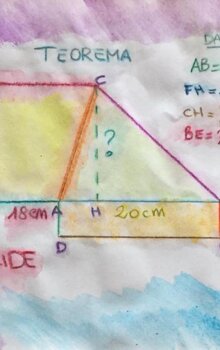 TEOREMA
DA
AB=
FH=
CH =
BE=
C
?
18cm A H 20cm
D
IDE